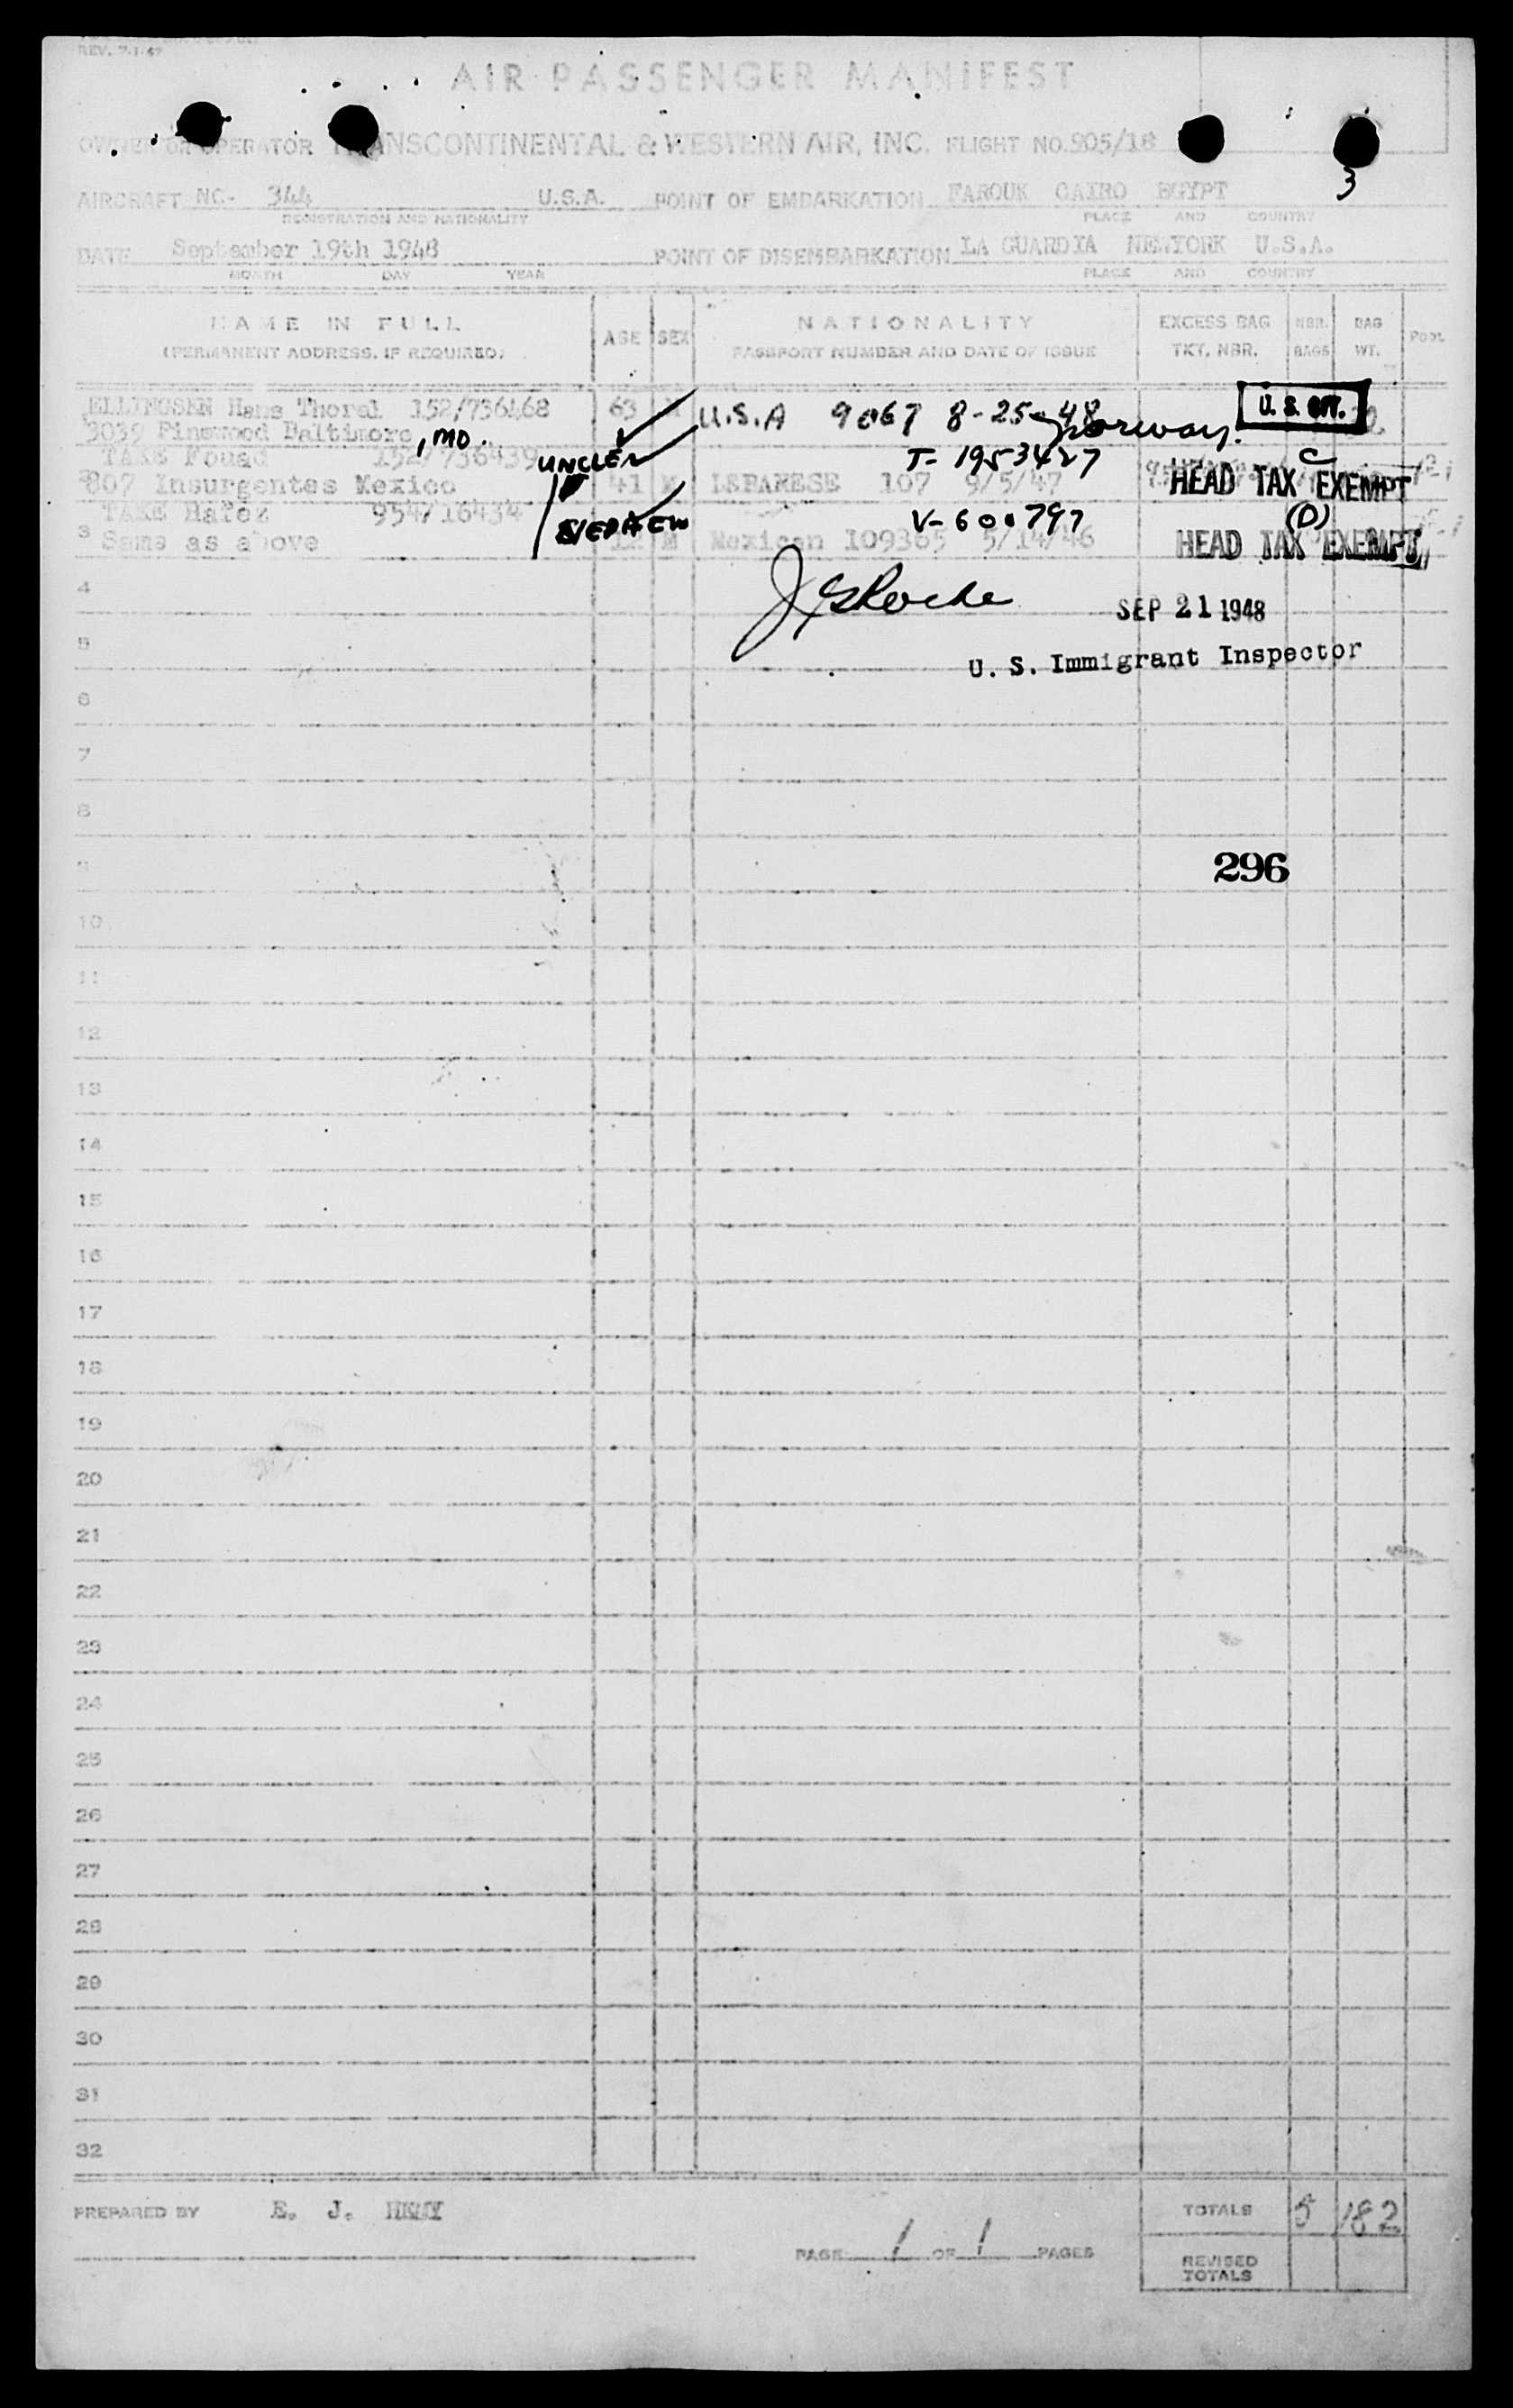 REV. 7-1-47
AIR PASSENGER MANIFEST
OWNER OR OPERATOR TRANSCONTINENTAL & WESTERN AIR, INC. FLIGHT NO. 905/18
3
AIRCRAFT NC- 344 U.S.A. POINT OF EMBARKATION FAROUK CAIRO EGYPT
REGISTRATION AND NATIONALITY PLACE AND COUNTRY
DATE September 19th 1948 POINT OF DISEMBARKATION LA GUARDIA NEWYORK U.S.A.
MONTH DAY YEAR PLACE AND COUNTRY
NAME IN FULL AGE SEX NATIONALITY EXCESS BAG NBR. BAG
(PERMANENT ADDRESS, IF REQUIRED) PASSPORT NUMBER AND DATE OF ISSUE TKT. NBR. BAGS WT.
ELLINGSEN Hans Thoral 152/736468 63 M U.S.A 9067 8-25-48 U. S. CIT.
3039 Pinewood Baltimore, MD. Norway.
TAKE Fouad 152/736439 UNCLE T- 1953427 C
807 Insurgentes Mexico 41 M LEBANESE 107 9/5/47 HEAD TAX EXEMPT
TAKE Hafez 954/16434 NEPHEW V-600797 (D)
3 Same as above 12 M Mexican 109365 5/14/46 HEAD TAX EXEMPT
4
SEP 21 1948
5
U. S. Immigrant Inspector
6
7
8
9 296
10
11
12
13
14
15
16
17
18
19
20
21
22
23
24
25
26
27
28
29
30
31
32
PREPARED BY E. J. TOTALS 5 182
PAGE 1 OF 1 PAGES
REVISED
TOTALS